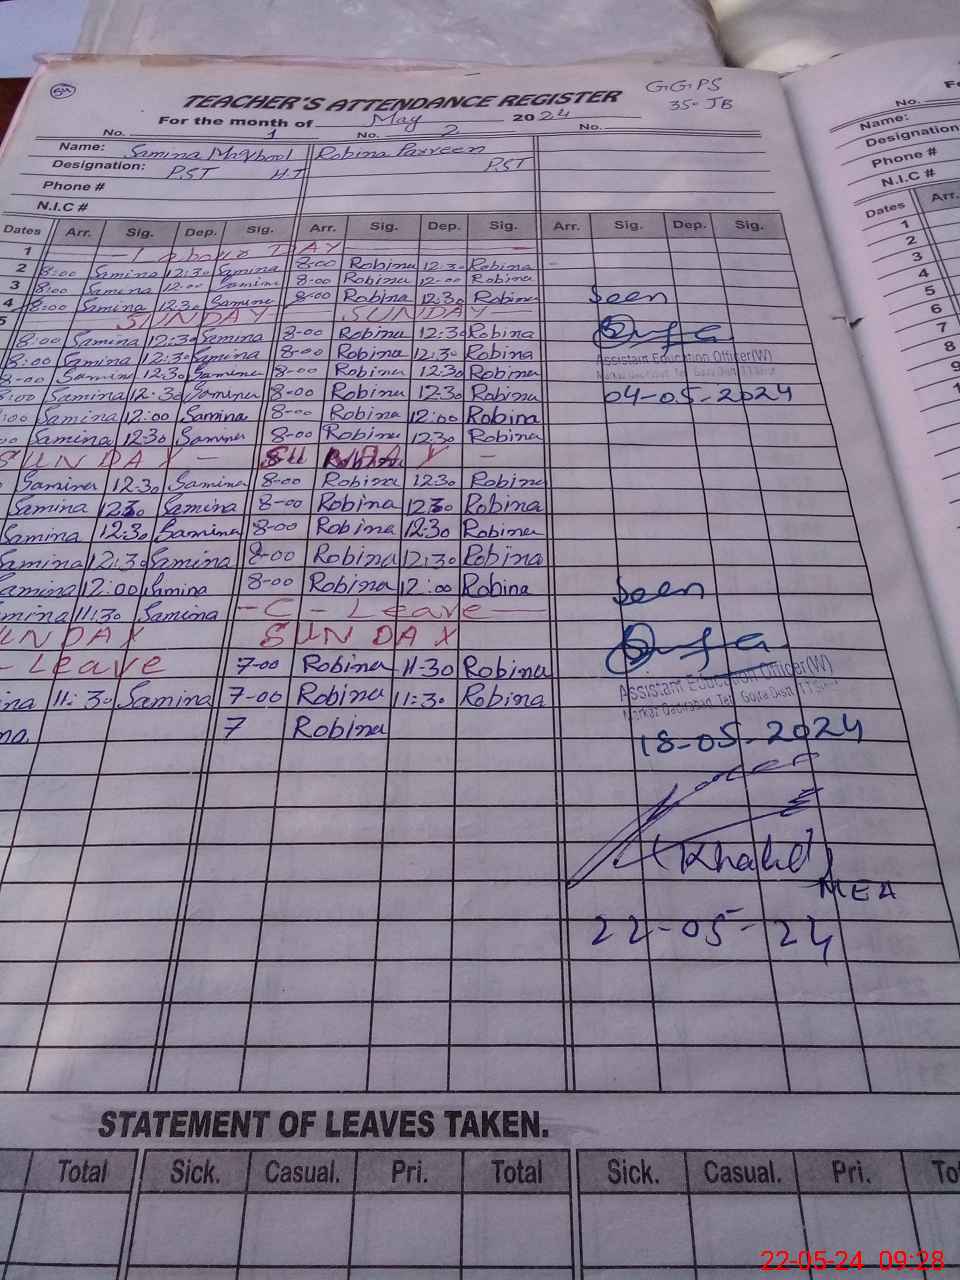 TEACHER'S ATTENDANCE REGISTER
GGPS
35-JB
For the month of May 2024
No. 1 No. 2 No.
Name: Samina Maqbool Robina Parveen
Designation: PST H.T PST
Phone #
N.I.C #
Dates Arr. Sig. Dep. Sig. Arr. Sig. Dep. Sig. Arr. Sig. Dep. Sig.
1 Labour DAY
2 8:00 Samina 12:30 Samina 8-00 Robina 12:30 Robina
3 8:00 Samina 12:00 Samina 8-00 Robina 12-00 Robina
4 8:00 Samina 12:30 Samina 8-00 Robina 12:30 Robina
Seen
5 SUNDAY SUNDAY
8:00 Samina 12:30 Samina 8-00 Robina 12:30 Robina
8:00 Samina 12:30 Samina 8-00 Robina 12:30 Robina
Assistant Education Officer(W)
8-00 Samina 12:30 Samina 8-00 Robina 12:30 Robina
8:00 Samina 12:30 Samina 8-00 Robina 12:30 Robina
04-05-2024
:00 Samina 12:00 Samina 8-00 Robina 12:00 Robina
Samina 12:30 Samina 8-00 Robina 12:30 Robina
SUNDAY SUNDAY
Samina 12:30 Samina 8-00 Robina 12:30 Robina
Samina 12:30 Samina 8-00 Robina 12:30 Robina
Samina 12:30 Samina 8-00 Robina 12:30 Robina
Samina 12:30 Samina 8-00 Robina 12:30 Robina
Samina 12:00 Samina 8-00 Robina 12:00 Robina
Seen
amina 11:30 Samina C-Leave
UNDAY SUNDAY
-Leave 7-00 Robina 11-30 Robina
Assistant Education Officer(W)
ina 11:30 Samina 7-00 Robina 11:30 Robina
na. 7 Robina
18-05-2024
(Khalid)
MEA
22-05-24
STATEMENT OF LEAVES TAKEN.
Total Sick. Casual. Pri. Total Sick. Casual. Pri. To
No.
Name:
Designation
Phone #
N.I.C #
Dates Arr.
1
2
3
4
5
6
7
8
9
1
22-05-24 09:28